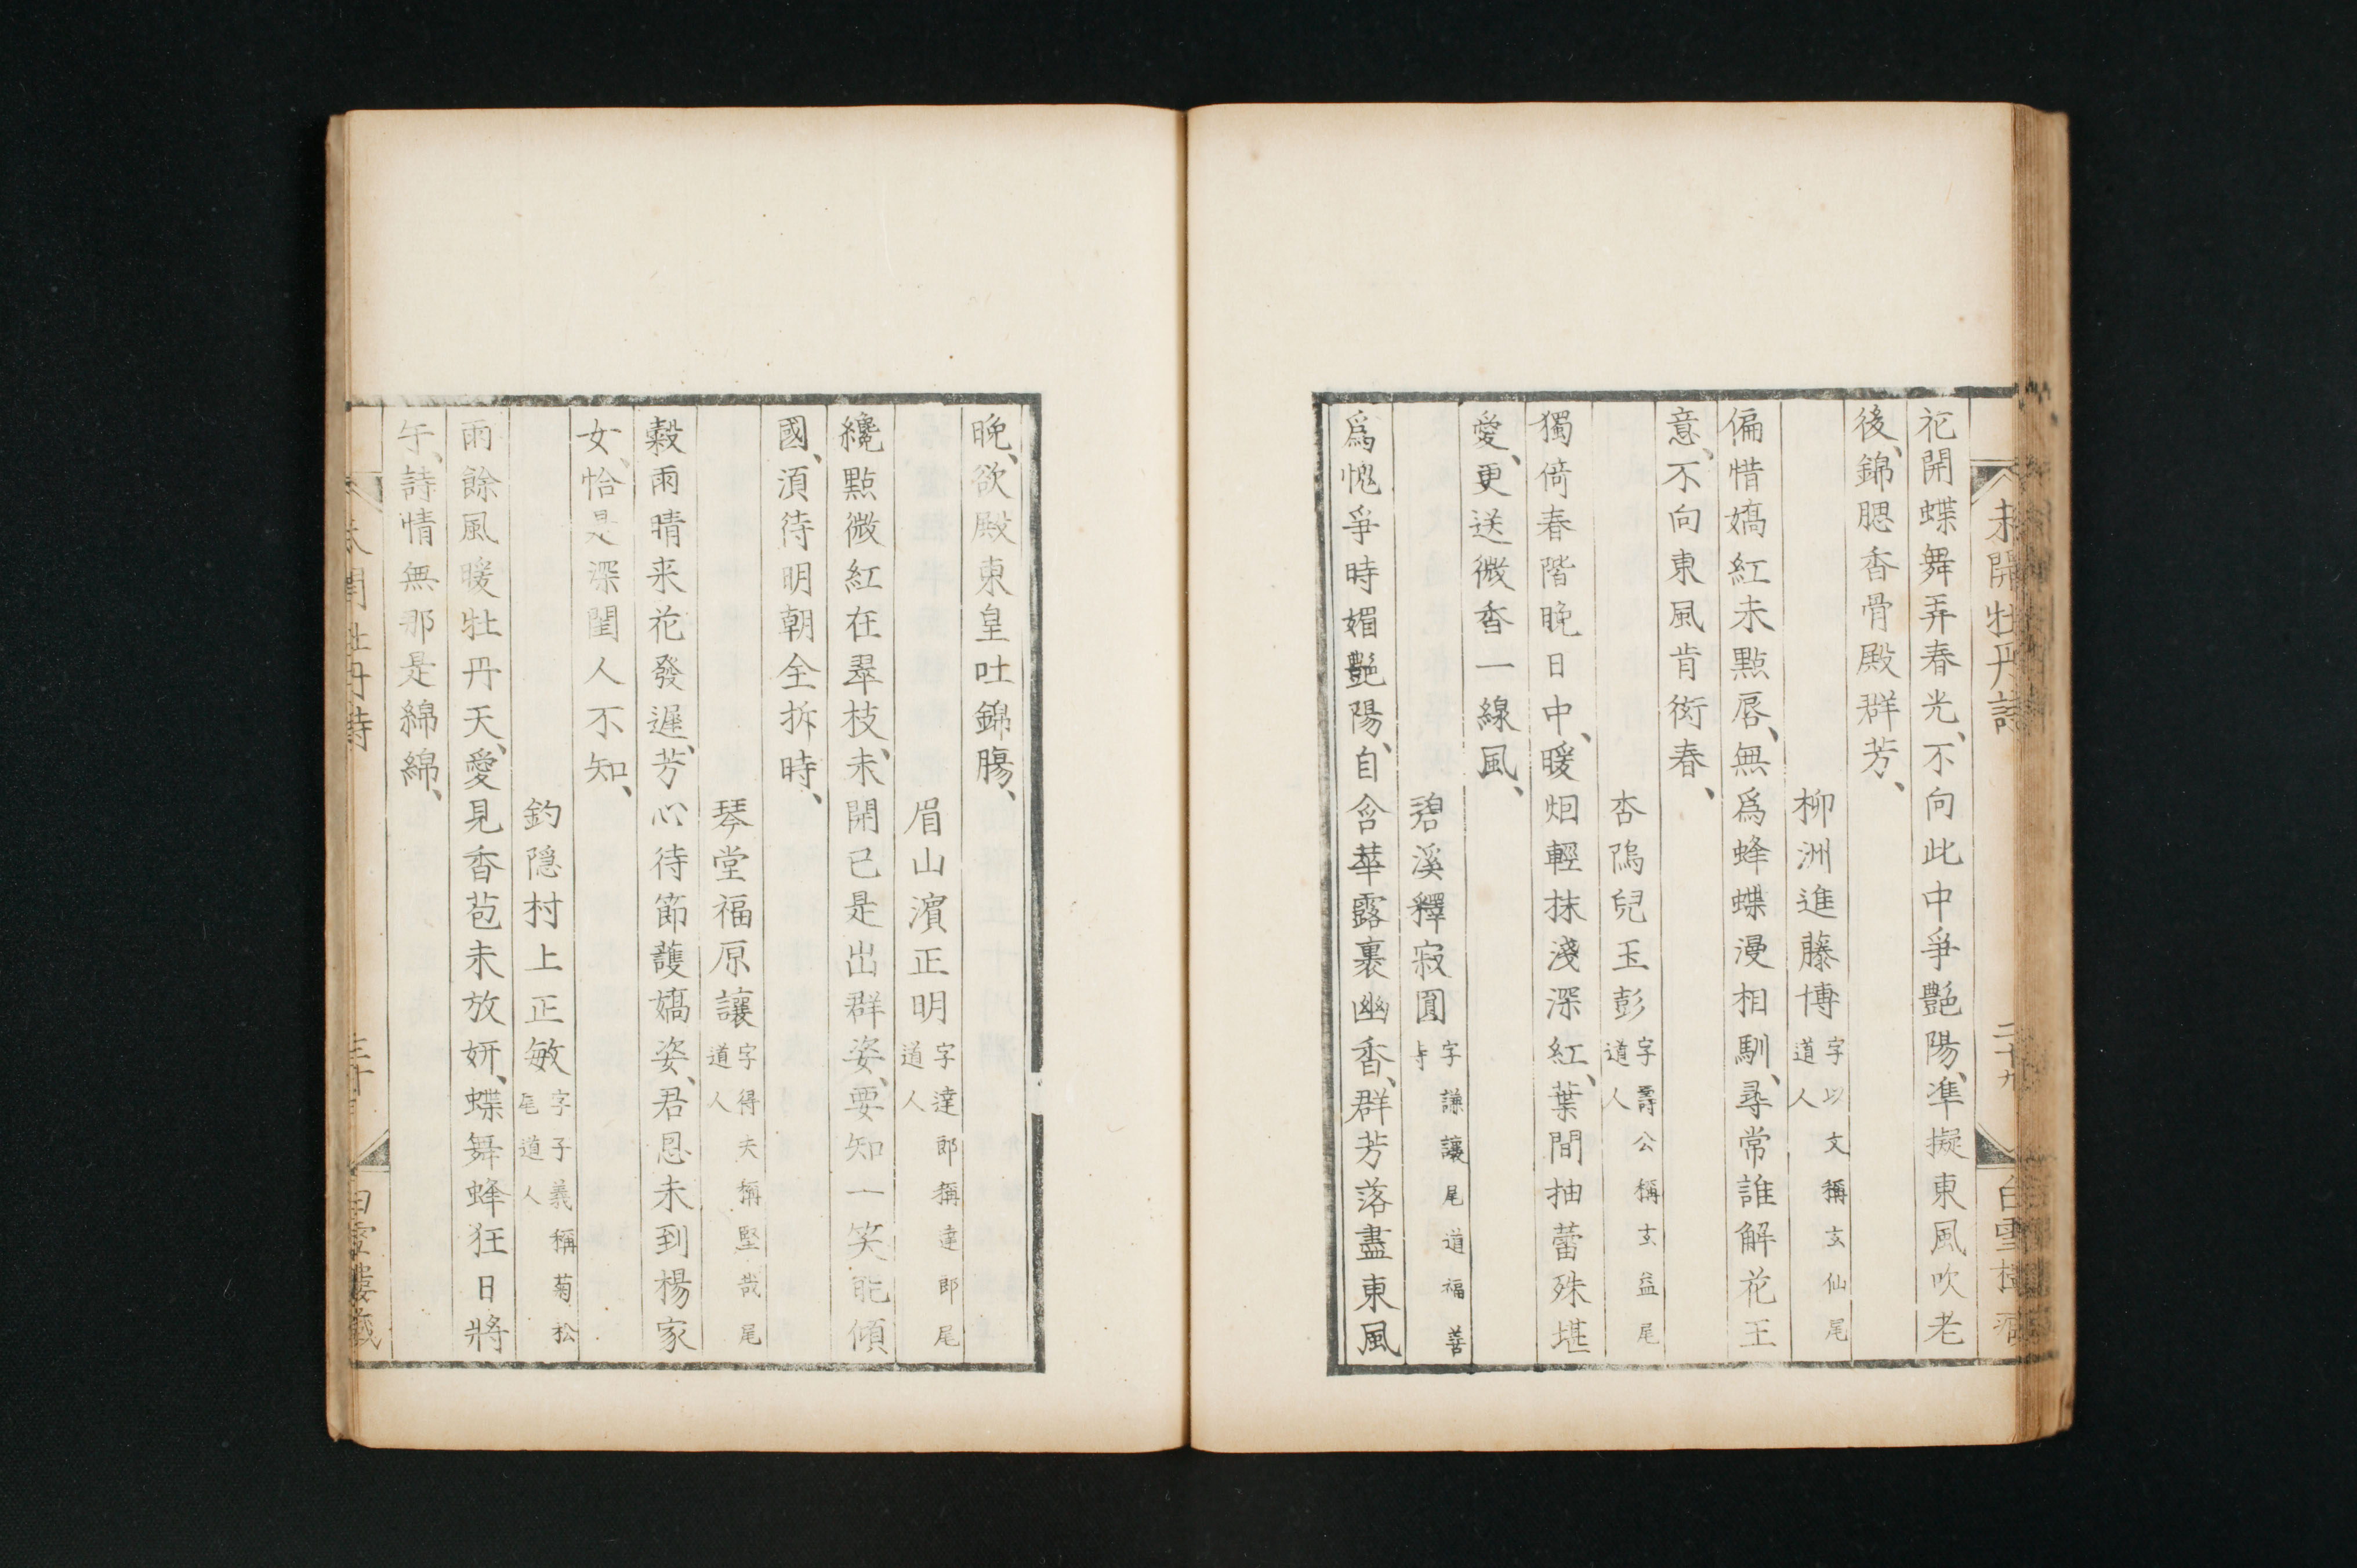 未開牡丹詩 二十九 白雪樓藏
花開蝶舞弄春光、不向此中爭艶陽、準擬東風吹老
後、錦腮香骨殿群芳、
柳洲進藤博 字以文稱玄仙尾道人
偏惜嬌紅未點唇、無爲蜂蝶漫相馴、尋常誰解花王
意、不向東風肯衒春、
杏隖兒玉彭 字壽公稱玄益尾道人
獨倚春階晚日中、暖烟輕抹淺深紅、葉間抽蕾殊堪
愛、更送微香一線風、
碧溪釋寂圓 字謙讓尾道福善寺
爲愧爭時媚艶陽、自含華露裹幽香、群芳落盡東風
晚、欲殿東皇吐錦腸、
眉山濵正明 字達郎稱達郎尾道人
纔點微紅在翠枝、未開已是出群姿、要知一笑能傾
國、湏待明朝全拆時、
琴堂福原讓 字得夫稱堅哉尾道人
穀雨晴来花發遲、芳心待節護嬌姿、君恩未到楊家
女、恰是深閨人不知、
釣隱村上正敏 字子義稱菊松尾道人
雨餘風暖牡丹天、愛見香苞未放妍、蝶舞蜂狂日將
午、詩情無那是綿綿、
未開牡丹詩 三十 白雪樓藏